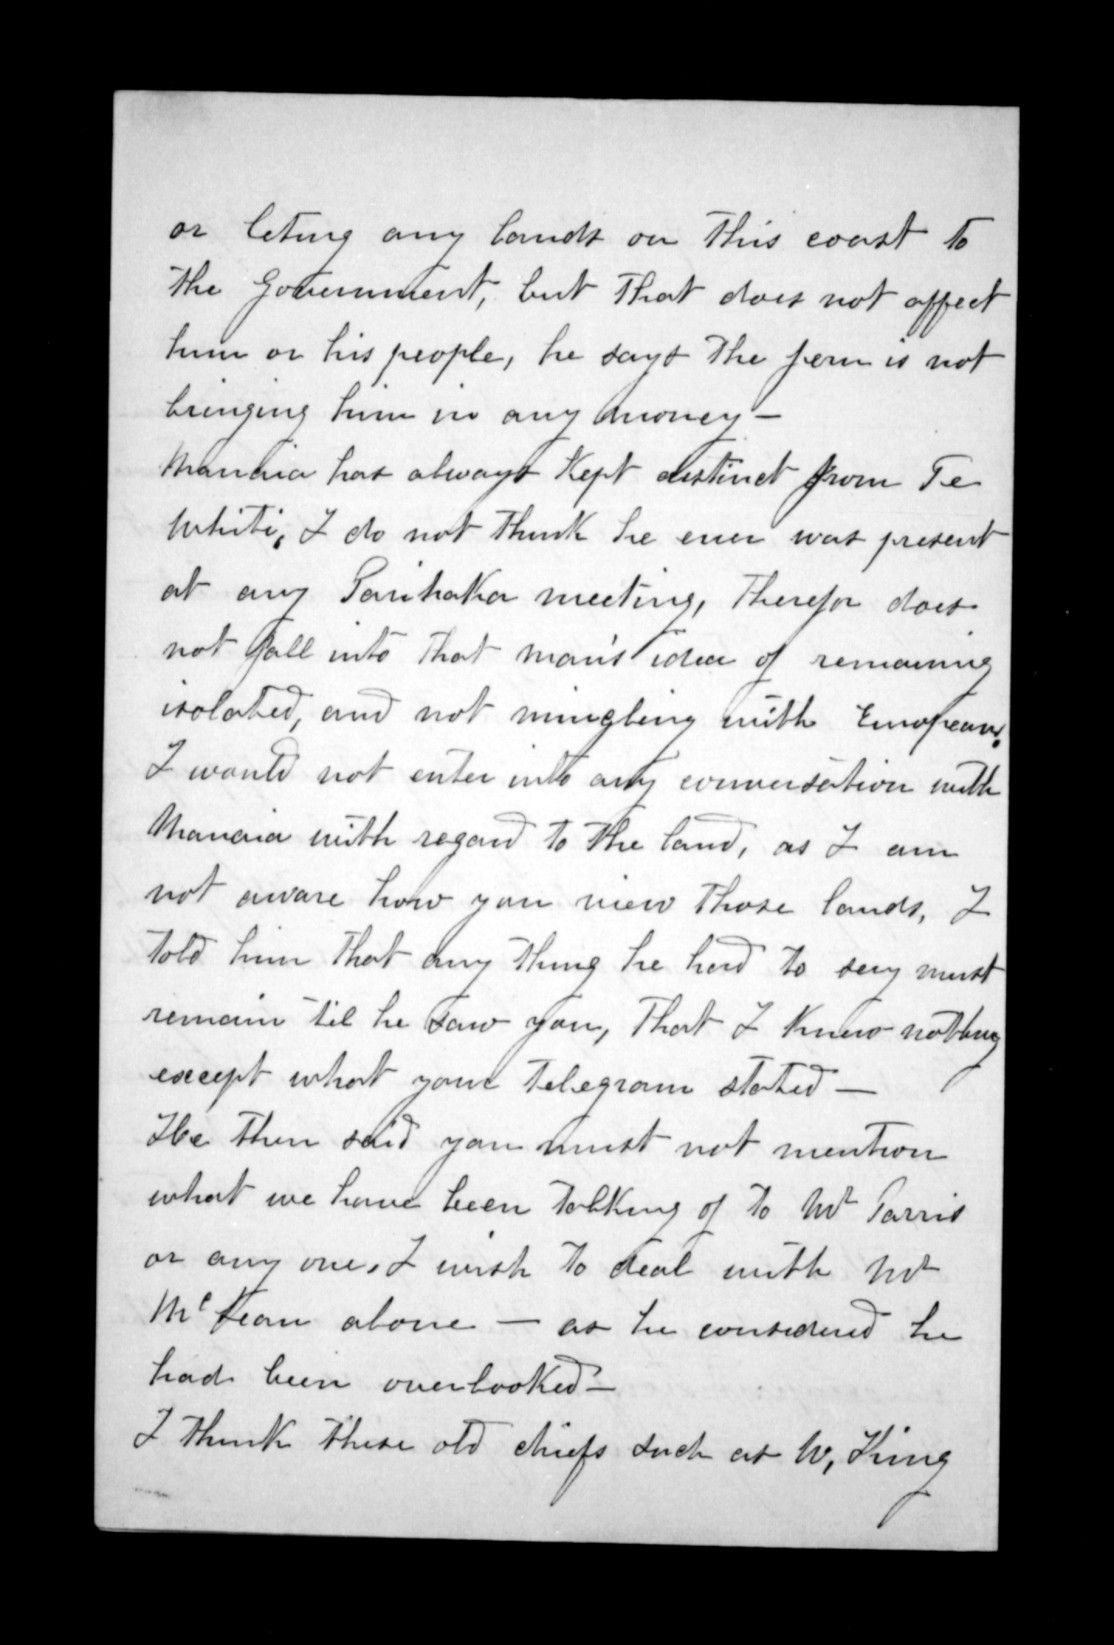 or leting any lands on this coast to
the Government, but that does not affect
him or his people, he says the fern is not
bringing him in any money —
Manaia has always kept distinct from Te
Whiti, I do not think he ever was present
at any Parihaka meeting, therefor does
not fall into that man's idea of remaining
isolated, and not mingling with Europeans.
I would not enter into any conversation with
Manaia with regard to the land, as I am
not aware how you view those lands, I
told him that any thing he had to say must
remain til he saw you, that I knew nothing
except what your telegram stated —
He then said you must not mention
what we have been talking of to Mr Parris
or any one, I wish to deal with Mr
McLean alone — as he considered he
had been overlooked —
I think these old chiefs such as W, King